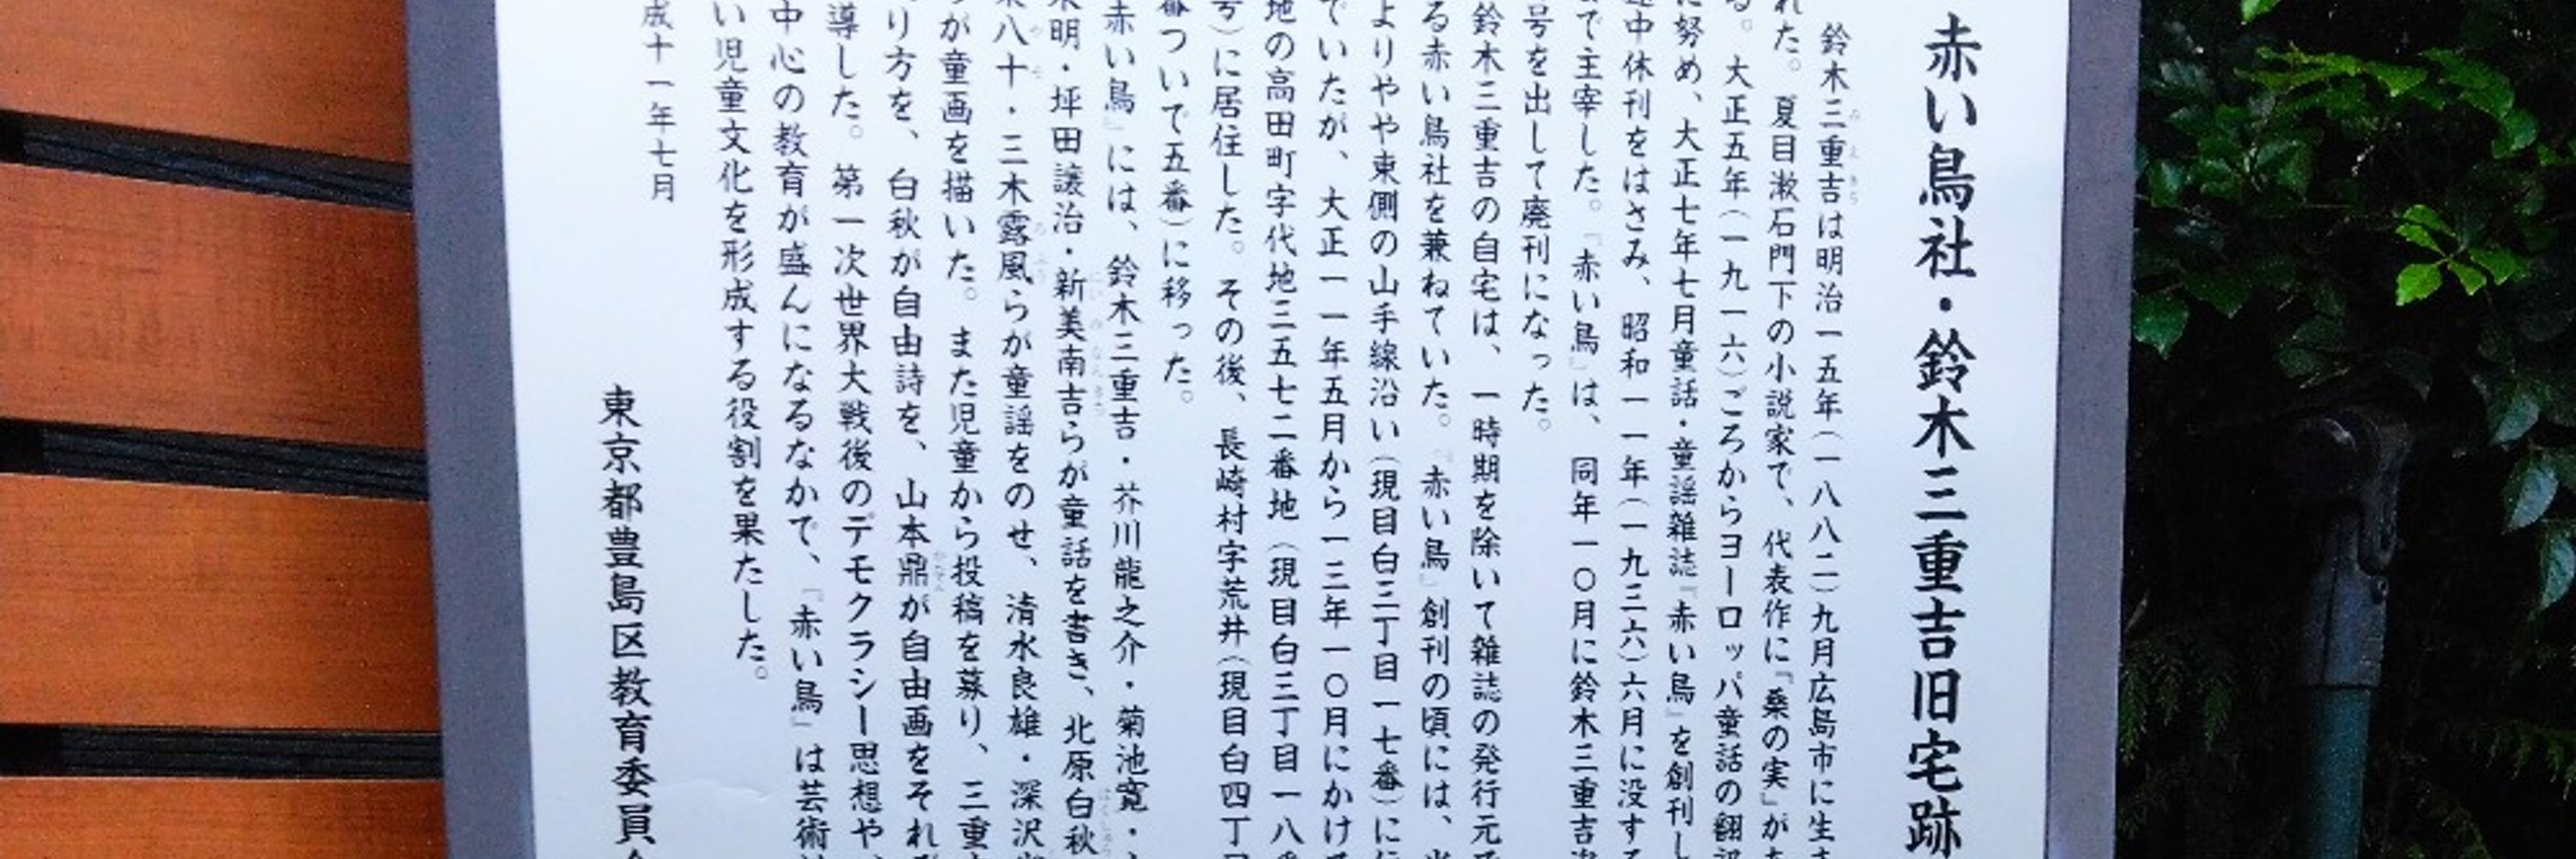 赤い鳥社・鈴木三重吉旧宅跡
鈴木三重吉は明治一五年(一八八二)九月広島市に生ま
れた。夏目漱石門下の小説家で、代表作に『桑の実』があ
る。大正五年(一九一六)ごろからヨーロッパ童話の翻訳
に努め、大正七年七月童話・童謡雑誌『赤い鳥』を創刊し
途中休刊をはさみ、昭和一一年(一九三六)六月に没する
まで主宰した。『赤い鳥』は、同年一〇月に鈴木三重吉追
号を出して廃刊になった。
鈴木三重吉の自宅は、一時期を除いて雑誌の発行元で
る赤い鳥社を兼ねていた。『赤い鳥』創刊の頃には、当
よりやや東側の山手線沿い(現目白三丁目一七番)に住
でいたが、大正一一年五月から一三年一〇月にかけて
地の高田町字代地三五七二番地(現目白三丁目一八番
号)に居住した。その後、長崎村字荒井(現目白四丁目
番ついで五番)に移った。
赤い鳥』には、鈴木三重吉・芥川龍之介・菊池寛・
未明・坪田譲治・新美南吉らが童話を書き、北原白秋
条八十・三木露風らが童謡をのせ、清水良雄・深沢省
が童画を描いた。また児童から投稿を募り、三重吉
り方を、白秋が自由詩を、山本鼎が自由画をそれぞ
導した。第一次世界大戦後のデモクラシー思想や、
中心の教育が盛んになるなかで、『赤い鳥』は芸術
い児童文化を形成する役割を果たした。
成十一年七月
東京都豊島区教育委員会